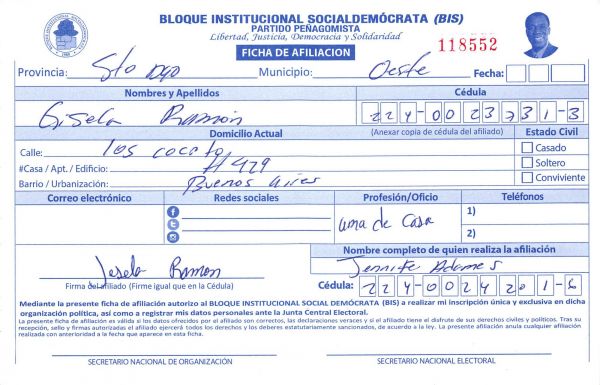 BLOQUE INSTITUCIONAL SOCIALDEMÓCRATA (BIS)
PARTIDO PEÑAGOMISTA
Libertad, Justicia, Democracia y Solidaridad
FICHA DE AFILIACION
118552
Provincia: Sto Dgo Municipio: Oeste Fecha:
Nombres y Apellidos Cédula
Gisela Ramón 224-0023731-3
Domicilio Actual (Anexar copia de cédula del afiliado) Estado Civil
Calle: los cocoto Casado
#Casa / Apt. / Edificio: #479 Soltero
Barrio / Urbanización: Buenos Aires Conviviente
Correo electrónico Redes sociales Profesión/Oficio Teléfonos
ama de Casa 1)
2)
Nombre completo de quien realiza la afiliación
Jesela Ramon Jennife Adames
Firma del afiliado (Firme igual que en la Cédula) Cédula: 224-0024201-6
Mediante la presente ficha de afiliación autorizo al BLOQUE INSTITUCIONAL SOCIAL DEMÓCRATA (BIS) a realizar mi inscripción única y exclusiva en dicha
organización política, así como a registrar mis datos personales ante la Junta Central Electoral.
La presente ficha de afiliación es válida si los datos ofrecidos por el afiliado son correctos, las declaraciones veraces y si el afiliado tiene el disfrute de sus derechos civiles y políticos. Tras su
recepción, sello y firmas autorizadas el afiliado ejercerá todos los derechos y los deberes estatutariamente sancionados, de acuerdo a la ley. La presente afiliación anula cualquier afiliación
realizada con anterioridad a la fecha que aparece en esta ficha.
SECRETARIO NACIONAL DE ORGANIZACIÓN SECRETARIO NACIONAL ELECTORAL